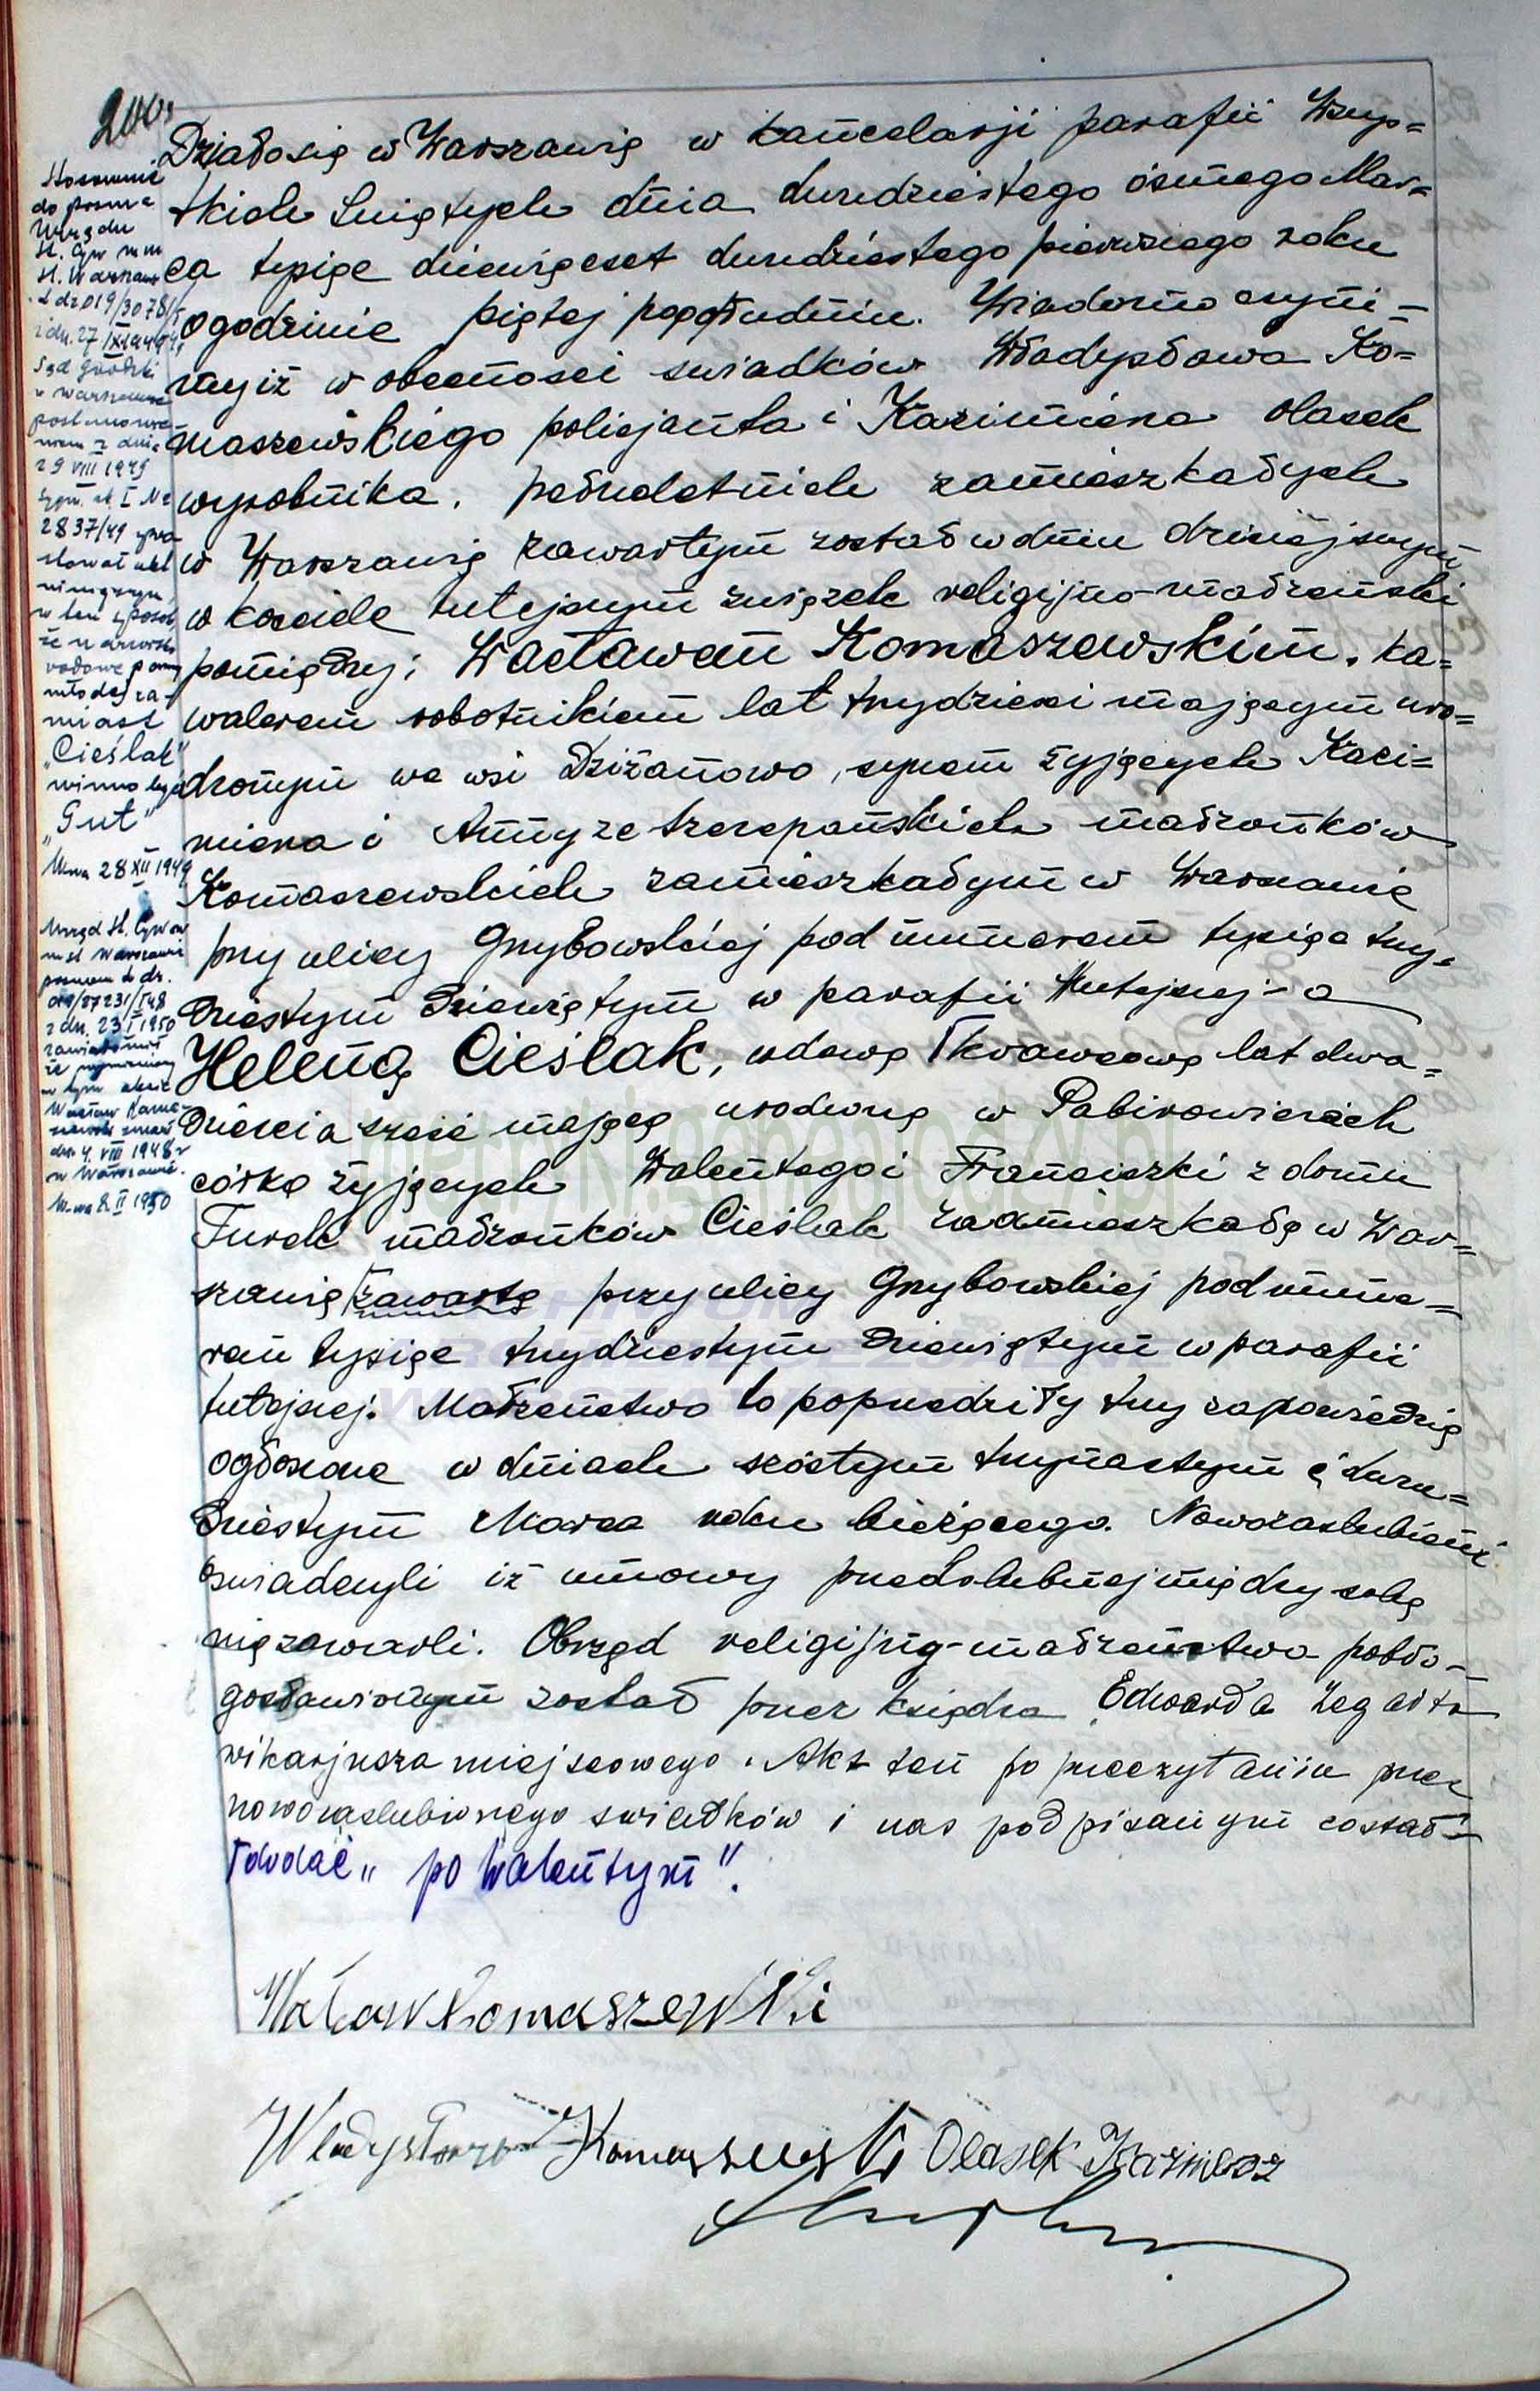 200.
Działo się w Warszawie w kancelarji parafii Wszys=
tkich Świętych dnia dwudziestego ósmego Mar=
ca tysiąc dziewięćset dwudziestego pierwszego roku
o godzinie piątej popołudniu. Wiadomo czyni=
my iż w obecności świadków Władysława Ko=
maszewskiego policjanta i Kazimierza Olasek
wyrobnika, pełnoletnich zamieszkałych
w Warszawie zawartym został w dniu dzisiejszym
w kościele tutejszym związek religijno-małżeński
pomiędzy: Wacławem Komaszewskim, ka=
walerem robotnikiem lat trzydzieści mającym uro=
dzonym we wsi Dziżanowo, synem żyjących Kazi=
mierza i Anny ze Szczepańskich małżonków
Komaszewskich zamieszkałym w Warszawie
przy ulicy Grzybowskiej pod numerem tysiąc trzy=
dziestym dziewiątym w parafii tutejszej - a
Heleną Cieślak, wdową Γ krawcową lat dwa=
dzieścia sześć mającą urodzoną w
córką żyjących Walentego i Franciszki z domu
Turek małżonków Cieślak zamieszkałą w War=
szawie przy ulicy Grzybowskiej pod nume=
rem tysiąc trzydziestym dziewiątym w parafii
tutejszej. Małżeństwo to poprzedziły trzy zapowiedzie
ogłoszone w dniach szóstym trzynastym i dwu=
dziestym Marca roku bieżącego. Nowozaślubieni
oświadczyli iż umowy przedślubnej między sobą
nie zawarli. Obrzęd religijny małżeństwa pobło=
gosławionym został przez księdza Edwarda
wikarjusza miejscowego. Akt ten po przeczytaniu przez
nowozaślubionego świadków i nas podpisanym został -
Γ dodać „po Walentym".
Wacław Komaszewski
Władysław Komaszewski Olasek Kazimierz
Stosownie
do pisma
Urzędu
St. Cyw. w m
st. Warszawie
z dn. 27 XI 1949
Sąd Grodzki
w Warszawie
postanowie-
niem z dnia
29 VIII 1949
2837/49
stował akt
niniejszy
w ten sposób
że nazwisko
rodowe panny
młodej za-
miast
„Cieślak"
winno być
„Gut"
W-wa 28 XII 1949
Urząd St. Cywiln.
m. st. Warszawie
pismem L. dz.
z dn. 23 I 1950
zawiadomił
że wymieniony
w tym akcie
Wacław Koma-
szewski zmarł
dn. 4. VIII 1948 r
w Warszawie.
W-wa 8. II 1950